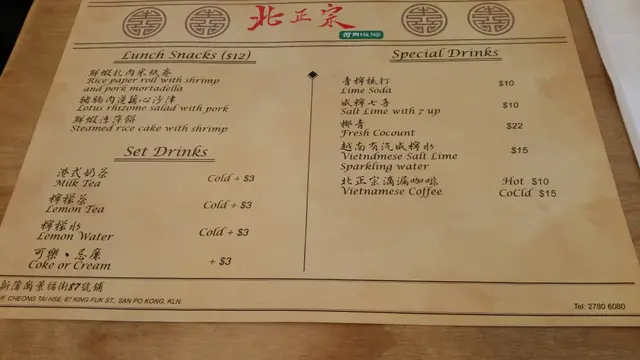 北正宗
河內Hà Nội
Lunch Snacks ($12)
鮮蝦扎肉米紙卷
Rice paper roll with shrimp
and pork mortadella
豬腩肉蓮藕心沙津
Lotus rhizome salad with pork
鮮蝦
Steamed rice cake with shrimp
Set Drinks
港式奶茶
Milk Tea
Cold + $3
檸檬茶
Lemon Tea
Cold + $3
檸檬水
Lemon Water
Cold + $3
可樂、忌廉
Coke or Cream
+ $3
Special Drinks
青檸梳打
Lime Soda
$10
咸檸七喜
Salt Lime with 7 up
$10
椰青
Fresh Cocount
$22
越南有汽咸檸水
Vietndmese Salt Lime
Sparkling water
$15
北正宗滴漏咖啡
Vietnamese Coffee
Hot $10
CoCld $15
新蒲崗景福街87號舖
CHEONG TAI HSE, 87 KING FUK ST., SAN PO KONG, KLN.
Tel: 2780 6080